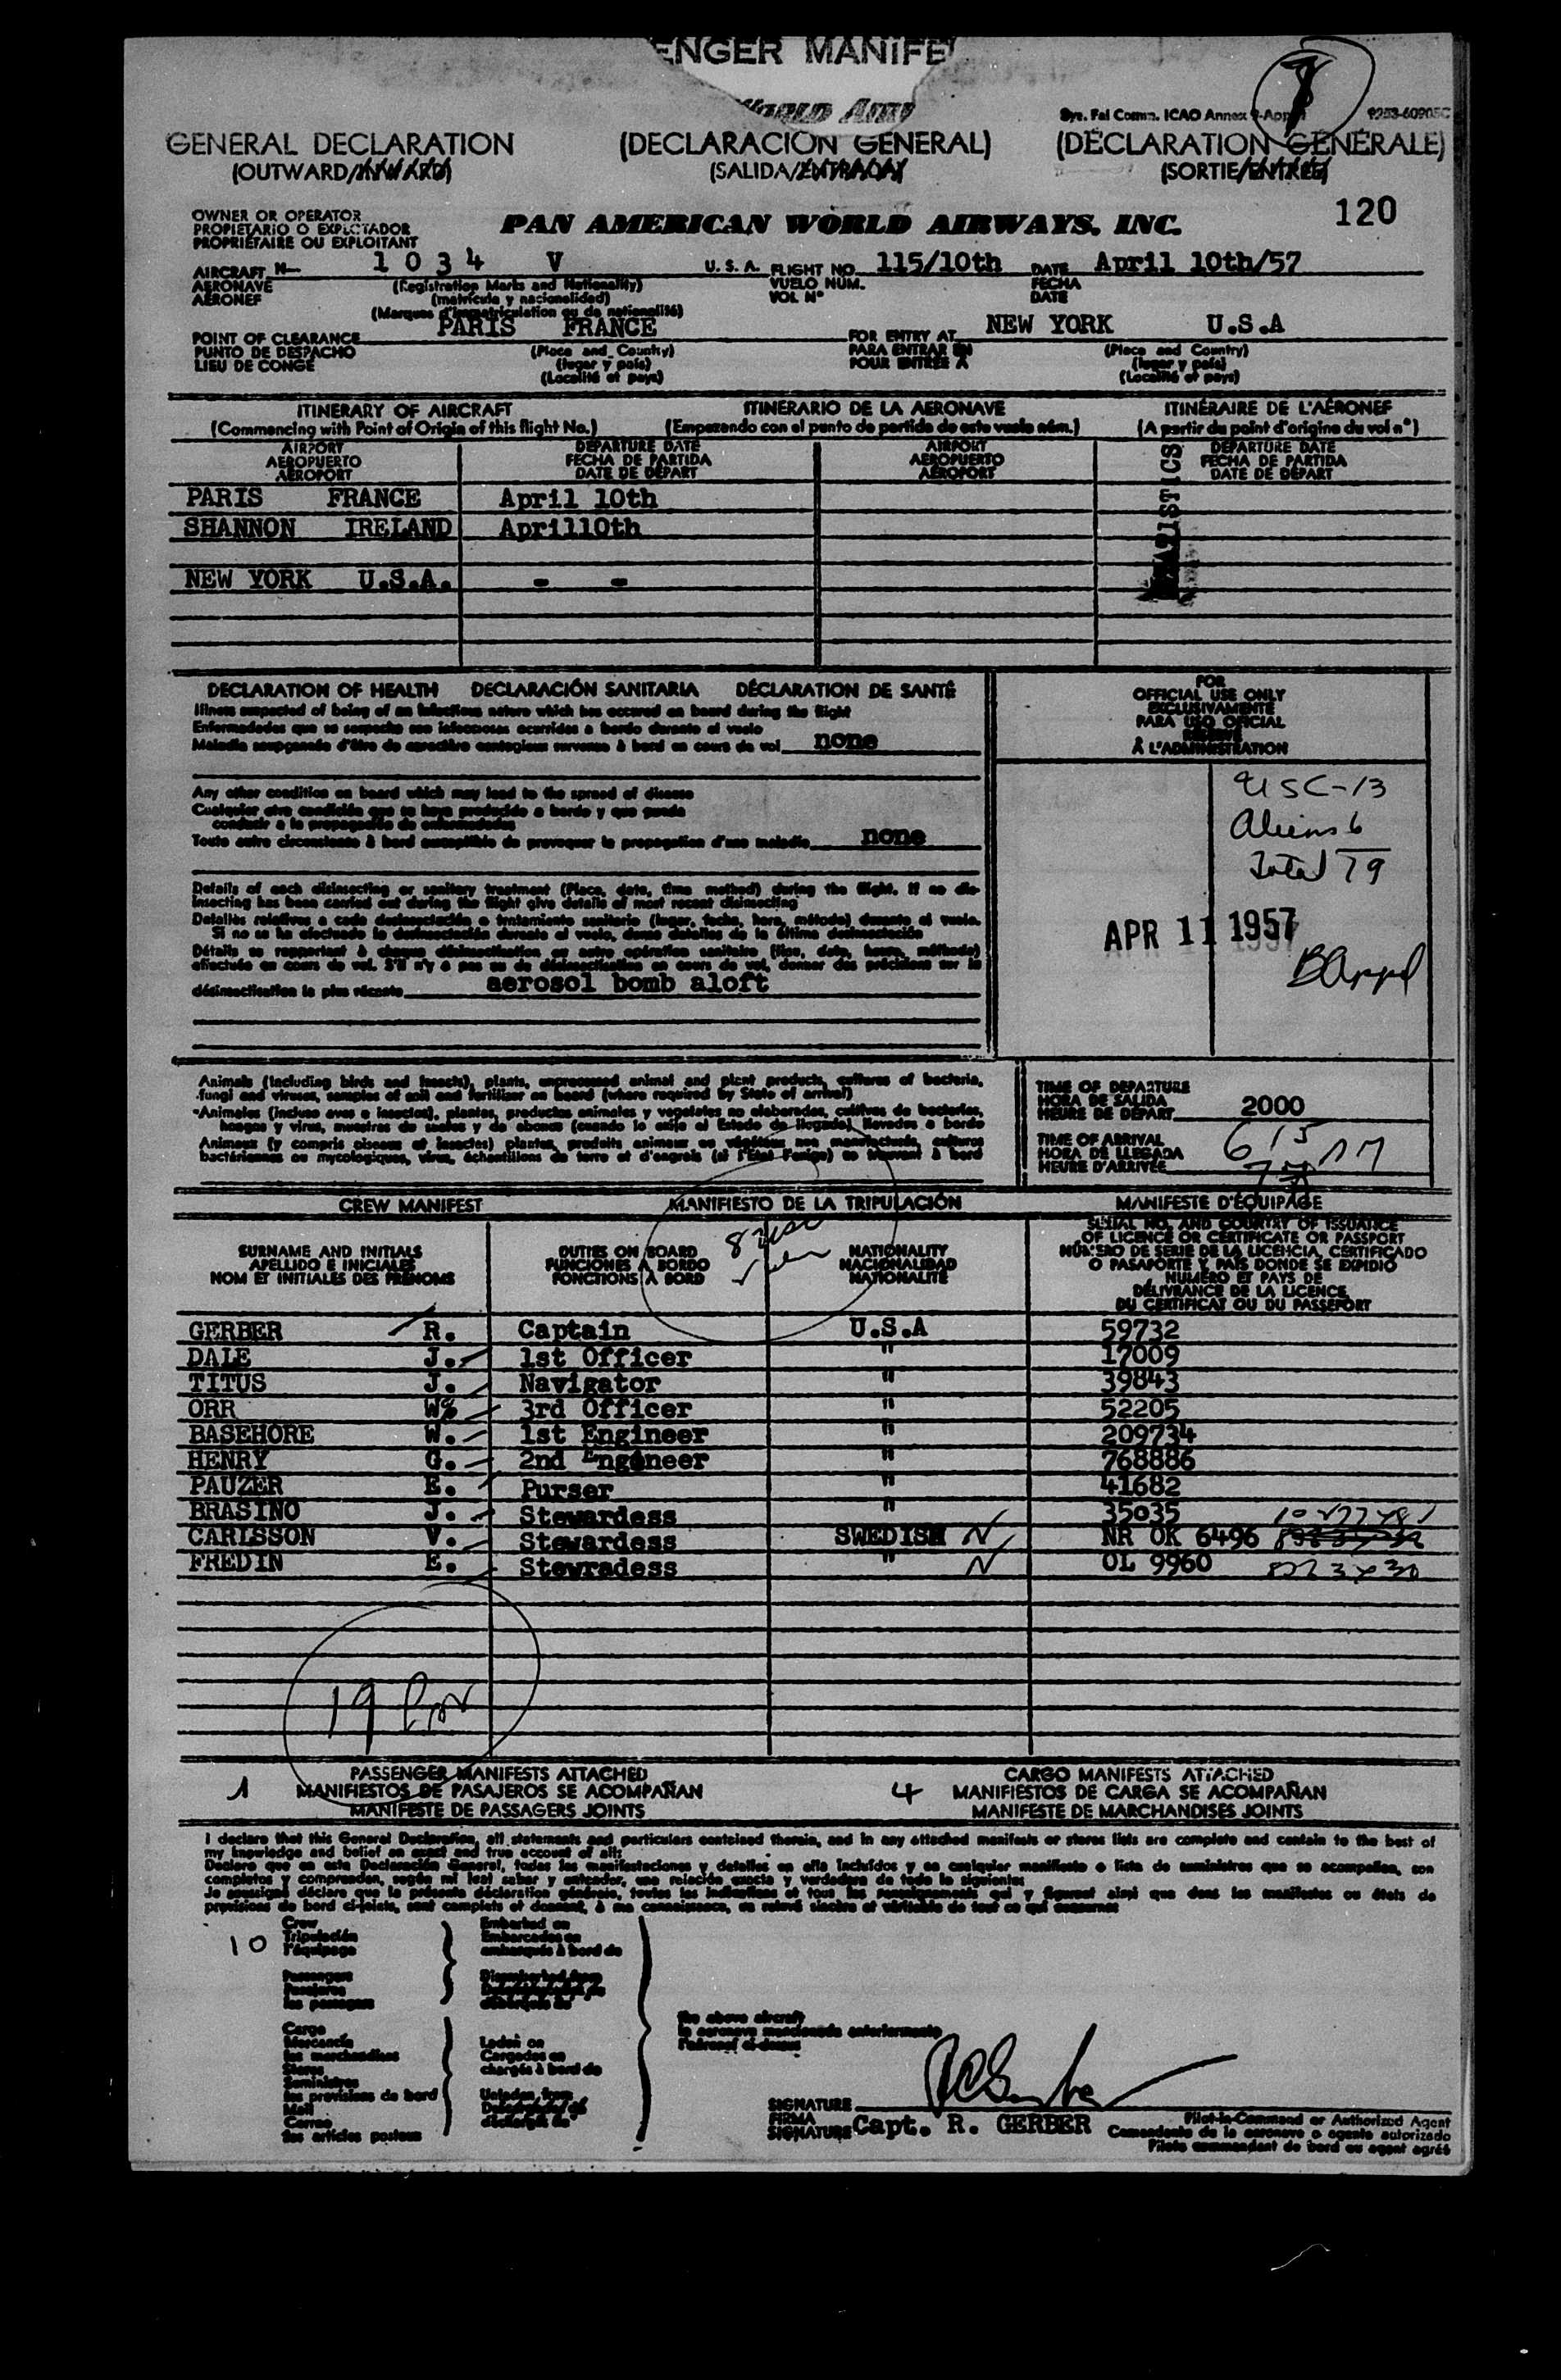 ENGER MANIFE
WORLD AIRW
Sys. Fal Comm. ICAO Annex 9-App 1 9253-60905C
GENERAL DECLARATION (DECLARACIÓN GENERAL) (DÉCLARATION GÉNÉRALE)
(OUTWARD/INWARD) (SALIDA/ENTRADA) (SORTIE/ENTRÉE)
120
OWNER OR OPERATOR
PROPIETARIO O EXPLOTADOR
PROPRIÉTAIRE OU EXPLOITANT
PAN AMERICAN WORLD AIRWAYS, INC.
AIRCRAFT N- 1 0 3 4 V U. S. A. FLIGHT NO. 115/10th DATE April 10th/57
AERONAVE (Registration Marks and Nationality) VUELO NUM. FECHA
AÉRONEF (matrícula y nacionalidad) VOL N° DATE
(Marques d'immatriculation ou de nationalité)
POINT OF CLEARANCE PARIS FRANCE FOR ENTRY AT NEW YORK U.S.A
PUNTO DE DESPACHO (Place and Country) PARA ENTRAR EN (Place and Country)
LIEU DE CONGÉ (lugar y país) POUR ENTRÉE À (lugar y país)
(Localité et pays) (Localité et pays)
ITINERARY OF AIRCRAFT ITINERARIO DE LA AERONAVE ITINÉRAIRE DE L'AÉRONEF
(Commencing with Point of Origin of this flight No.) (Empezando con el punto de partida de este vuelo núm.) (A partir du point d'origine du vol n°)
AIRPORT DEPARTURE DATE AIRPORT DEPARTURE DATE
AEROPUERTO FECHA DE PARTIDA AEROPUERTO FECHA DE PARTIDA
AÉROPORT DATE DE DÉPART AÉROPORT DATE DE DÉPART
PARIS FRANCE April 10th
SHANNON IRELAND April10th
NEW YORK U.S.A. - -
DECLARATION OF HEALTH DECLARACIÓN SANITARIA DÉCLARATION DE SANTÉ
Illness suspected of being of an infectious nature which has occured on board during the flight
Enfermedades que se sospecha son infecciosas ocurridas a bordo durante el vuelo
Maladie soupçonnée d'être de caractère contagieux survenue à bord en cours de vol none
Any other condition on board which may lead to the spread of disease
Cualquier otra condición que se haya producido a bordo y que pueda
conducir a la propagación de enfermedades
Toute autre circonstance à bord susceptible de provoquer la propagation d'une maladie none
Details of each disinsecting or sanitary treatment (Place, date, time method) during the flight. If no dis-
insecting has been carried out during the flight give details of most recent disinsecting
Detalles relativos a cada desinsectación o tratamiento sanitario (lugar, fecha, hora, método) durante el vuelo.
Si no se ha efectuado la desinsectación durante el vuelo, dense detalles de la última desinsectación
Détails se rapportant à chaque désinsectisation ou autre opération sanitaire (lieu, date, heure, méthode)
effectuée en cours de vol. S'il n'y a pas eu de désinsectisation en cours de vol, donner des précisions sur la
désinsectisation la plus récente aerosol bomb aloft
FOR
OFFICIAL USE ONLY
EXCLUSIVAMENTE
PARA USO OFICIAL
RÉSERVÉ
À L'ADMINISTRATION
USC-13
Aliens 6
Total 19
APR 11 1957
Animals (including birds and insects), plants, unprocessed animal and plant products, cultures of bacteria,
fungi and viruses, samples of soil and fertilizer on board (where required by State of arrival)
Animales (incluso aves e insectos), plantas, productos animales y vegetales no elaborados, cultivos de bacterias,
hongos y virus, muestras de suelos y de abonos (cuando lo exija el Estado de llegada) llevados a bordo
Animaux (y compris oiseaux et insectes) plantes, produits animaux ou végétaux non manufacturés, cultures
bactériennes ou mycologiques, virus, échantillons de terre et d'engrais (si l'Etat l'exige) se trouvant à bord
TIME OF DEPARTURE
HORA DE SALIDA
HEURE DE DÉPART 2000
TIME OF ARRIVAL
HORA DE LLEGADA
HEURE D'ARRIVÉE 615
CREW MANIFEST MANIFIESTO DE LA TRIPULACIÓN MANIFESTE D'ÉQUIPAGE
SURNAME AND INITIALS
APELLIDO E INICIALES
NOM ET INITIALES DES PRÉNOMS
DUTIES ON BOARD
FUNCIONES A BORDO
FONCTIONS À BORD
8 usc
NATIONALITY
NACIONALIDAD
NATIONALITÉ
SERIAL NO. AND COUNTRY OF ISSUANCE
OF LICENCE OR CERTIFICATE OR PASSPORT
NÚMERO DE SERIE DE LA LICENCIA, CERTIFICADO
O PASAPORTE Y PAÍS DONDE SE EXPIDIÓ
NUMÉRO ET PAYS DE
DÉLIVRANCE DE LA LICENCE,
DU CERTIFICAT OU DU PASSEPORT
GERBER R. Captain U.S.A 59732
DALE J. 1st Officer " 17009
TITUS J. Navigator " 39843
ORR W% 3rd Officer " 52205
BASEHORE W. 1st Engineer " 209734
HENRY G. 2nd Engineer " 768886
PAUZER E. Purser " 41682
BRASINO J. Stewardess " 35035
CARLSSON V. Stewardess SWEDISH NR OK 6496
FREDIN E. Stewradess " OL 9960
19
1 PASSENGER MANIFESTS ATTACHED 4 CARGO MANIFESTS ATTACHED
MANIFIESTOS DE PASAJEROS SE ACOMPAÑAN MANIFIESTOS DE CARGA SE ACOMPAÑAN
MANIFESTE DE PASSAGERS JOINTS MANIFESTE DE MARCHANDISES JOINTS
I declare that this General Declaration, all statements and particulars contained therein, and in any attached manifests or stores lists are complete and contain to the best of
my knowledge and belief an exact and true account of all:
Declaro que en esta Declaración General, todas las manifestaciones y detalles en ella incluídos y en cualquier manifiesto o lista de suministros que se acompañan, son
completos y comprenden, según mi leal saber y entender, una relación exacta y verdadera de todo lo siguiente:
Je soussigné déclare que la présente déclaration générale, toutes les indications et tous les renseignements qui y figurent ainsi que dans les manifestes ou états de
provisions de bord ci-joints, sont complets et donnent, à ma connaissance, un relevé sincère et véritable de tout ce qui concerne:
10
Crew
Tripulación
l'équipage
Embarked on
Embarcados en
embarqués à bord de
Passengers
Pasajeros
les passagers
Cargo
Mercancía
les marchandises
Stores
Suministros
les provisions de bord
Mail
Correo
les articles postaux
Laden on
Cargados en
chargés à bord de
Unladen from
the above aircraft
la aeronave mencionada anteriormente
l'aéronef ci-dessus
SIGNATURE
FIRMA
SIGNATURE Capt. R. GERBER
Pilot-in-Command or Authorized Agent
Comandante de la aeronave o agente autorizado
Pilote commandant de bord ou agent agréé